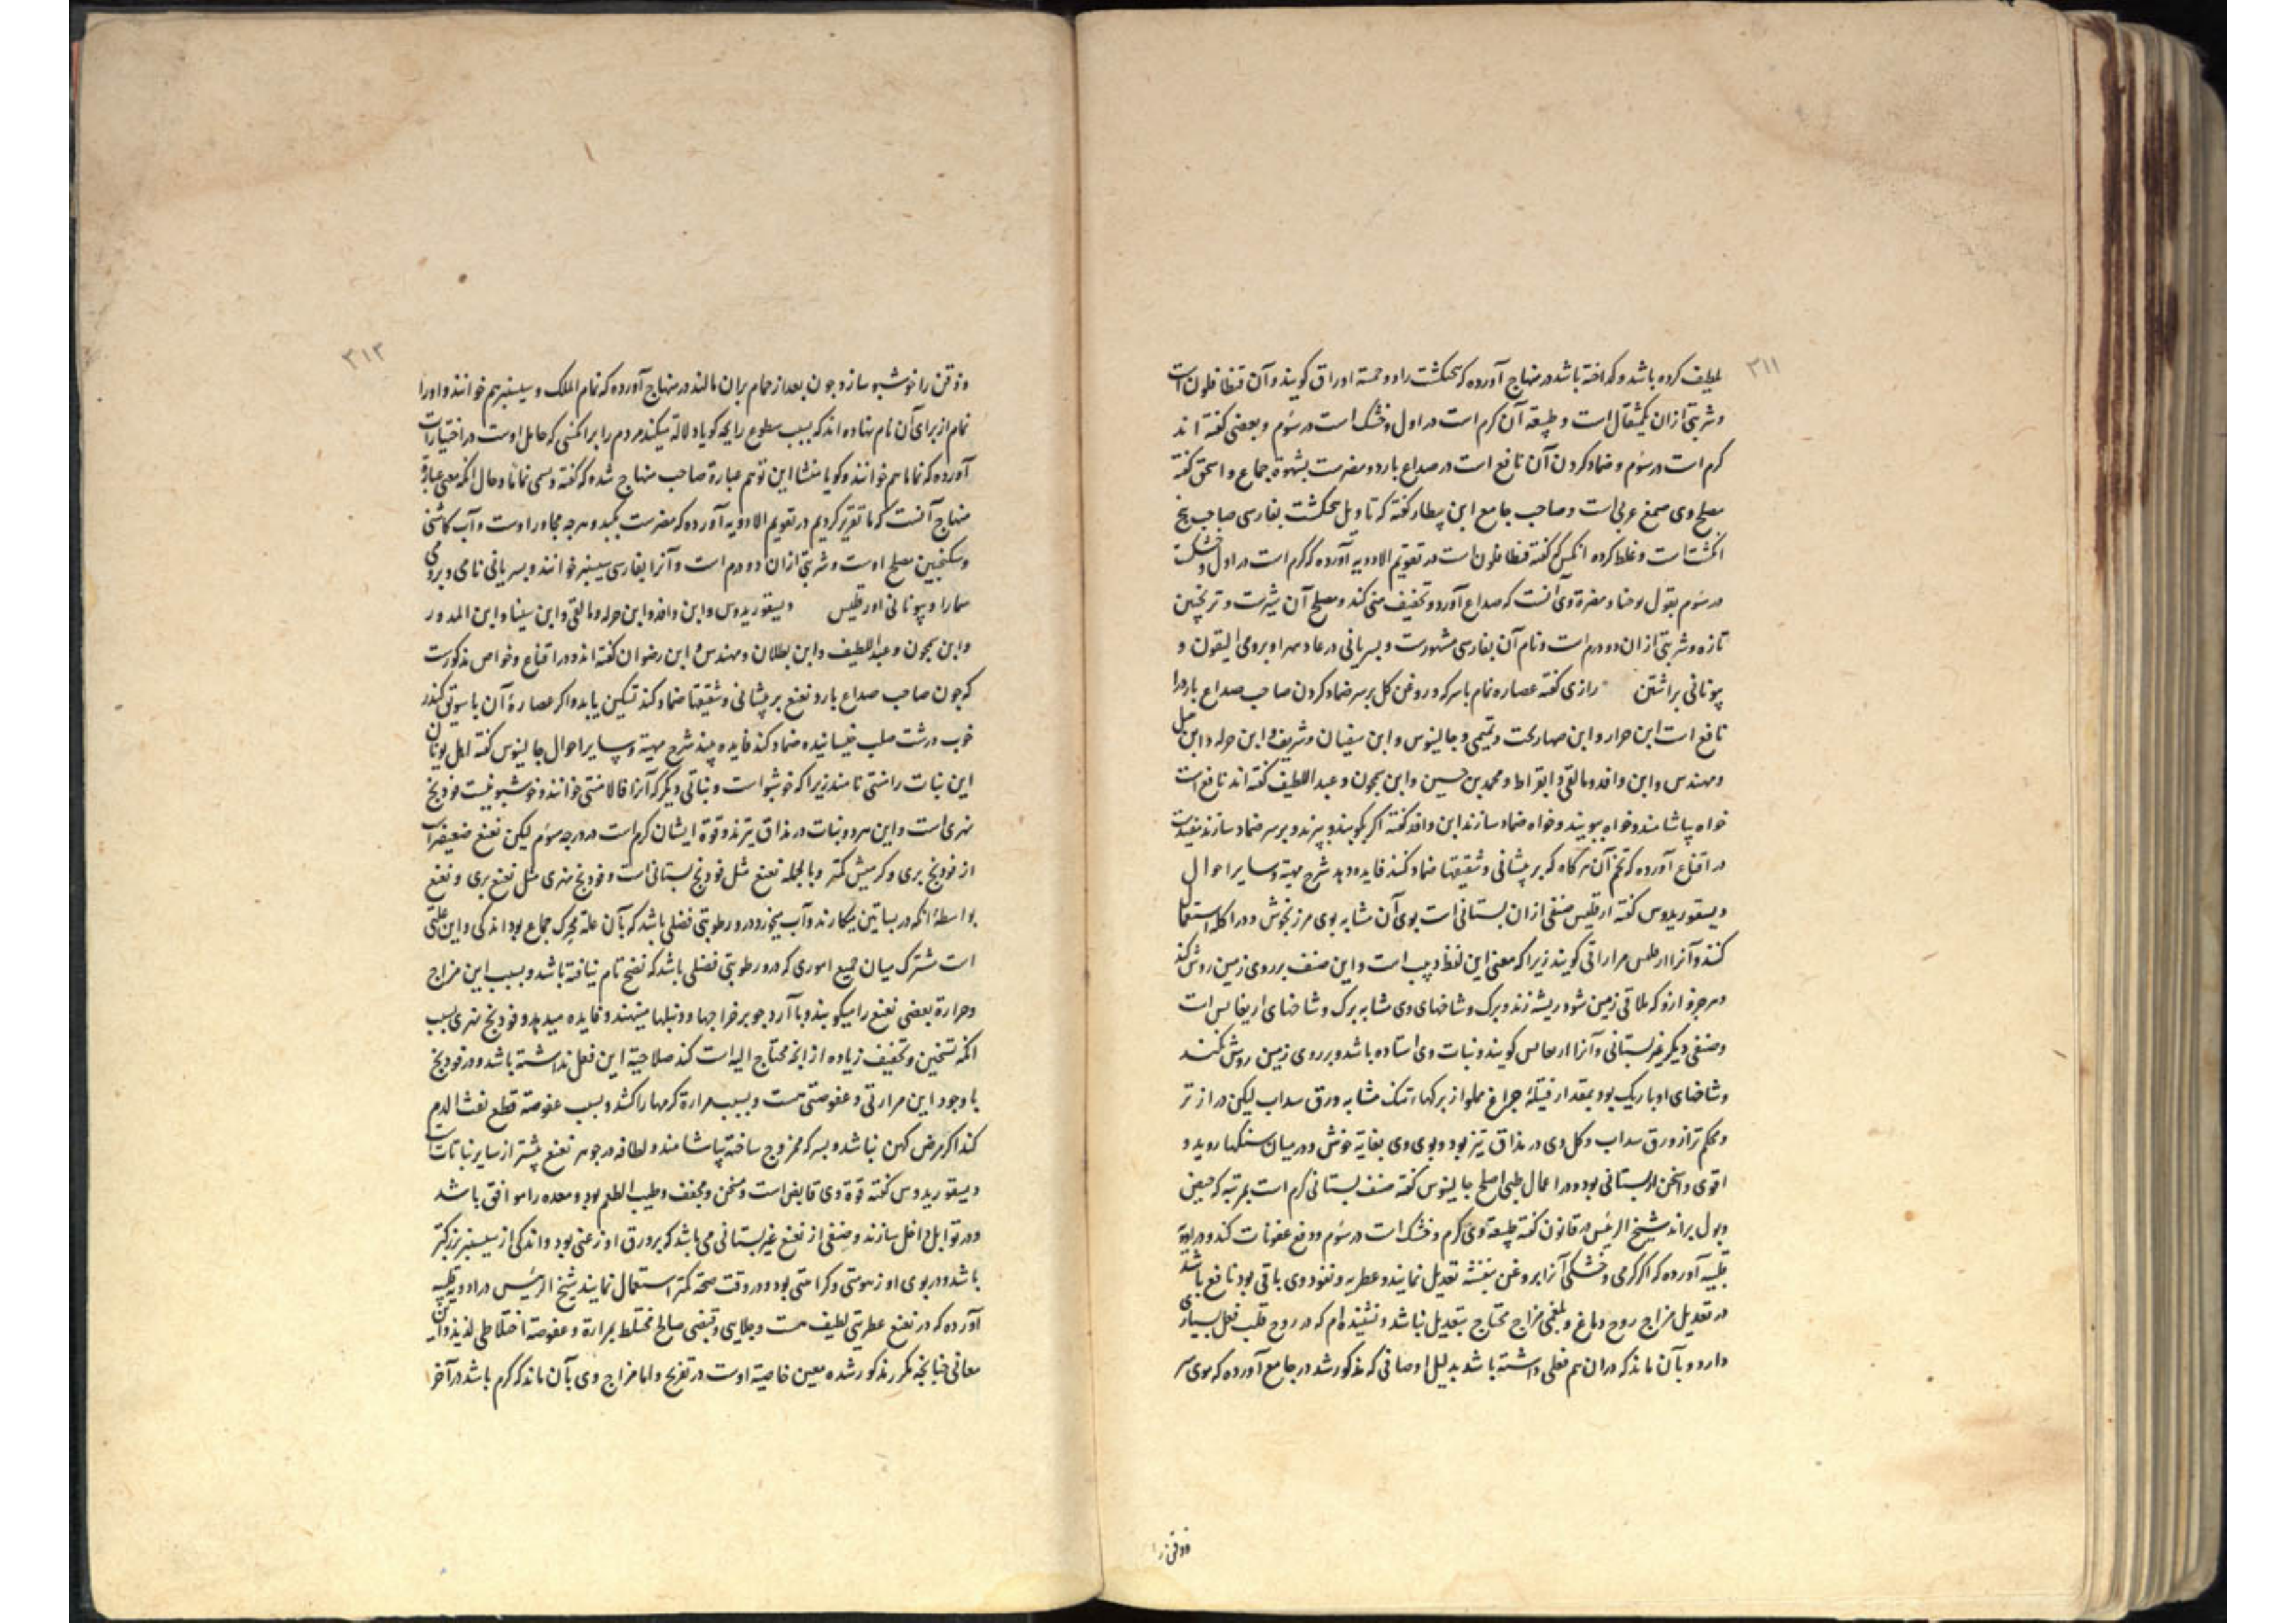 ۳۱۱
لطیف کرده باشد و کداخته باشد در منهاج آورده که بنجنکشت را دو خمسة اوراق کویند و آن فنطافلون است
و شربتی از ان یکمثقال است و طبیعة آن کرم است در اول و خشک است در سوم و بعضی کفته اند
کرم است در سوم و ضماد کردن آن نافع است در صداع بارد و مضرست بشهوة جماع و اسحق کفته
مصلح وی صمغ عربی است و صاحب جامع ابن بیطار کفته که تاویل بنجنکشت بفارسی صاحب پنج
انکشت است و غلط کرده انکس که کفته فنطافلون است در تقویم الادویه آورده که کرم است در اول و خشکست
در سوم بقول یوحنا و مضرة وی آنست که صداع آورد و تجفیف منی کند و مصلح آن شیرست و ترنجبین
تازه و شربتی از ان دو درم است و نام آن بفارسی مشهورست و بسریانی و برومی القون و
یونانی رازی کفته عصاره نمام با سرکه و روغن کل بر سر ضماد کردن صاحب صداع بارد را
نافع است ابن حرار و ابن صهاربخت و تمیمی و جالینوس و ابن سفیان و شریف و ابن حرله و ابن
و مهندس و ابن وافد و مالقی و ابقراط و محمد بن حسین و ابن بجون و عبد اللطیف کفته اند نافع است
خواه بیاشامند و خواه ببویند و خواه ضماد سازند ابن وافد کفته اکر بکوبند و بپزند و بر سر ضماد سازند مفیدست
در اقناع آورده که تخم آن هرکاه که بر پیشانی و شقیقها ضماد کنند فایده دهد شرح مهیة و سایر احوال
دیسقوریدوس کفته ارفلس صنفی از ان بستانی است بوی آن مشابه بوی مرزنجوش و در اکله استعمال
کنند و آنرا ارفلس کویند زیرا که معنی این لفظ دبیب است و این صنف بر روی زمین روش کند
و هر جزو ازو که ملاقی زمین شود ریشه زند و برک و شاخهای وی مشابه برک و شاخهای اریغانس است
و صنفی دیکر غیر بستانی و آنرا کویند و نبات وی استاده باشد و بر روی زمین روش نکند
و شاخهای او باریک بود بمقدار فتیلهٔ چراغ مملو از برکها تنک مشابه ورق سداب لیکن دراز تر
و محکم تر از ورق سداب و کل وی در مذاق تیز بود و بوی وی بغایة خوش و در میان سنکها روید و
اقوی و اسخن از بستانی بود و در اعمال طبی اصلح جالینوس کفته صنف بستانی کرم است بمرتبه که حیض
و بول براند شیخ الرئیس در قانون کفته طبیعة وی کرم و خشک است در سوم و دفع عفونات کند و در ادویة
قلبیه آورده که اکر کرمی و خشکی آنرا بروغن بنفشه تعدیل نمایند و عطریه و نفوذ وی باقی بود نافع باشد
در تعدیل مزاج روح دماغ و بلغمی مزاج محتاج بتعدیل نباشد و نشنیده ام که در روح قلب فعل بسیاری
دارد و بآن ماند که در ان هم فعلی داشته باشد بدلیل اوصافی که مذکور شد در جامع آورده که موی سر
و ذقن را
۳۱۲
و ذقن را خوشبو سازد چون بعد از حمام بران مالند در منهاج آورده که نمام الملک و سیسنبر هم خوانند و او را
نمام از برای آن نام نهاده اند که بسبب سطوع رایحه کویا دلالة میکند مردم را بر انکسی که حامل اوست در اختیارات
آورده که نمانا هم خوانند و کویا منشا این توهم عبارة صاحب منهاج شده که کفته و سمی نمانا و حال انکه معنی عبارة
منهاج آنست که ما تقریر کردیم در تقویم الادویه آورده که مضرست بکبد و هر چه مجاور اوست و آب کاسنی
و سکنجبین مصلح اوست و شربتی از ان دو درم است و آنرا بفارسی سیسنبر خوانند و بسریانی نامی و برومی
سمارا و یونانی اورطیس دیسقوریدوس و ابن وافد و ابن حرله و مالقی و ابن سینا و ابن المدور
و ابن بجون و عبد اللطیف و ابن بطلان و مهندس و ابن رضوان کفته اند و در اقناع و خواص مذکورست
که چون صاحب صداع بارد نعنع بر پیشانی و شقیقها ضماد کند تسکین یابد و اکر عصارهٔ آن با سویق کندر
خوب درشت صلب خیسانیده ضماد کند فایده بیند شرح مهیة و سایر احوال جالینوس کفته اهل یونان
این نبات را منثی نامند زیرا که خوشبو است و نباتی دیکر که آنرا قالامنثی خوانند و خوشبو نیست فودنج
نهری است و این هر دو نبات در مذاق تیزند و قوة ایشان کرم است در درجه سوم لیکن نعنع ضعیفتر است
از فودنج بری و کرمیش کمتر و بالجمله نعنع مثل فودنج بستانی است و فودنج نهری مثل نعنع بری و نعنع
بواسطهٔ انکه در بساتین میکارند و آب میخورد در و رطوبتی فضلی باشد که بآن علة محرک جماع بود اندکی و این علتی
است مشترک میان جمیع اموری که در و رطوبتی فضلی باشد که نضج تام نیافته باشد و بسبب این مزاج
و حرارة بعضی نعنع را میکوبند و با آرد جو بر خراجها و دنبلها مینهند و فایده میدهد و فودنج نهری بسبب
انکه تسخین و تجفیف زیاده از انچه محتاج الیه است کند صلاحیة این فعل نداشته باشد و در فودنج
با وجود این مرارتی و عفوصتی هست و بسبب مرارة کرمها را کشد و بسبب عفوصة قطع نفث الدم
کند اکر مرض کهن نباشد و بسرکه ممزوج ساخته بیاشامند و لطافة در جوهر نعنع بیشتر از سایر نباتات است
دیسقوریدوس کفته قوة وی قابض است و مسخن و مجفف و طیب الطعم بود و معده را موافق باشد
و در توابل داخل سازند و صنفی از نعنع غیر بستانی می باشد که بر ورق او زغبی بود و اندکی از سیسنبر بزرکتر
باشد و در بوی او زهومتی و کراهتی بود و در وقت صحة کمتر استعمال نمایند شیخ الرئیس در ادویه قلبیه
آورده که در نعنع عطریتی لطیف هست و جلایی و قبضی صالح مختلط بمرارة و عفوصة اختلاطی لذیذ و این
معانی چنانچه مکرر مذکور شده معین خاصیة اوست در تفریح و اما مزاج وی بآن ماند که کرم باشد در آخر